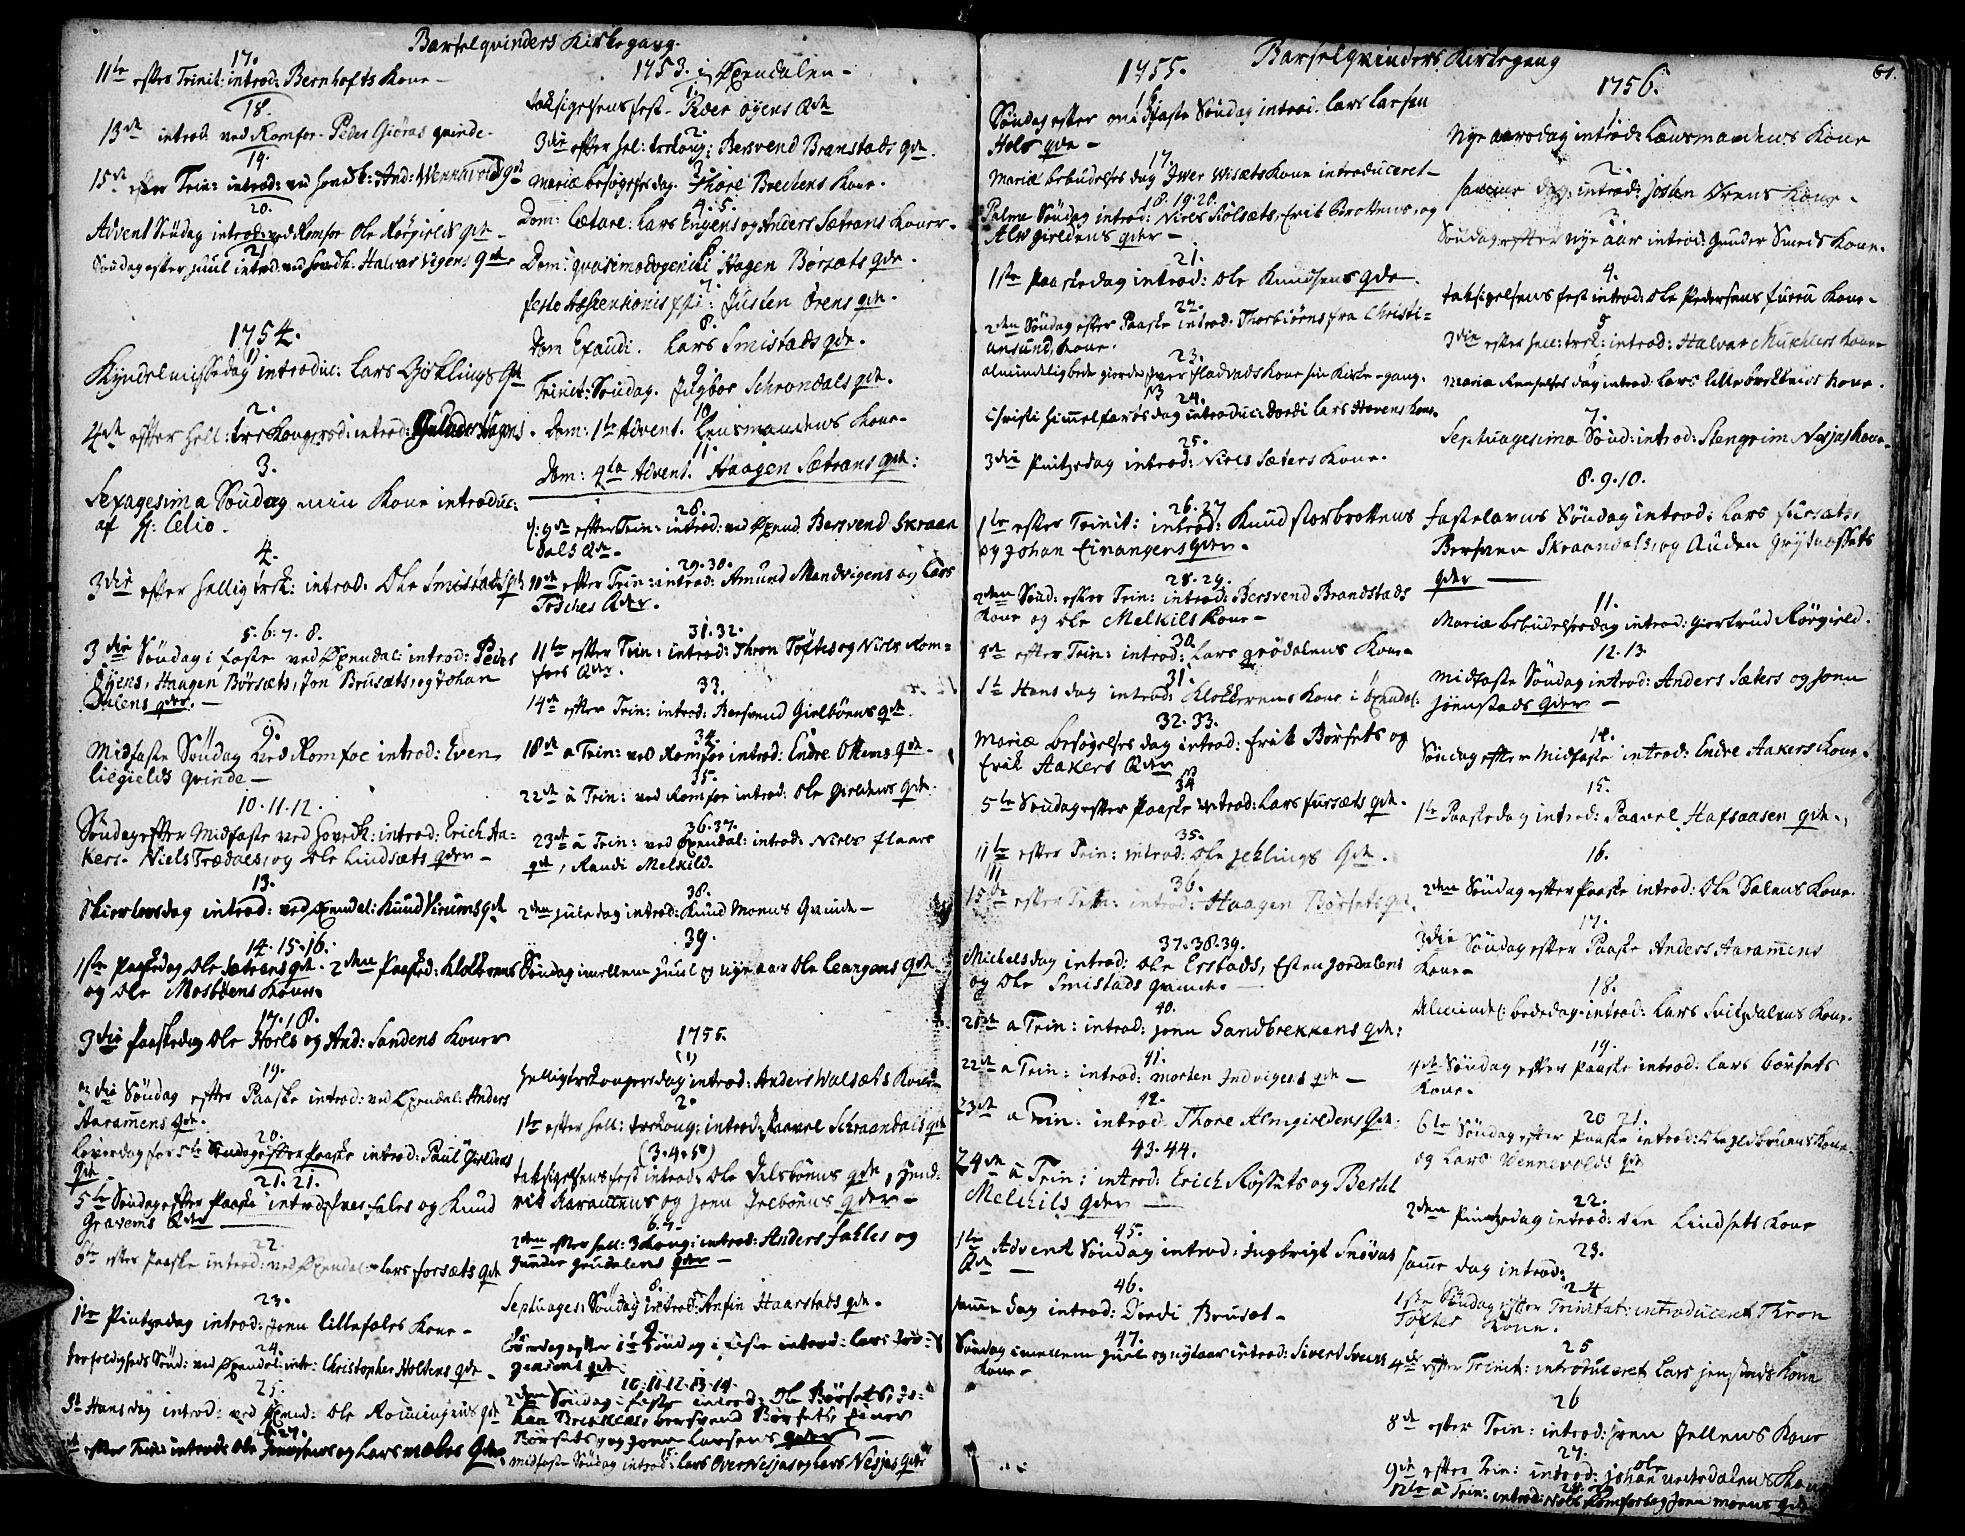 Barselqvinders Kirkegang.
17.
11te efter Trinit: introd: Bernhofts Kone
18.
13de introd: ved Romfoe Peder Giöras qvinde.
19.
15de efter Trin: introd: ved hovedk: And: Wennevolds qde
20.
Advent Söndag introd: ved Romfoe Ole Rörgields qde
21
Söndag efter Juul introd: ved hovedk: Halvor Vigens qde
1754.
Kyndelmissedag introduc: Lars Gicklings qde
2.
4de efter hell: tre Konger introd:
3.
Sexagesima Söndag min Kone introduc:
af H: Celio.
4.
3die efter hellig trek: introd. Ole Smistads qde
5.6.7.8.
3die Söndag i faste ved Öxendal: introd: Peder
Öyens, Haagen Börsæts, Jon Brusæts, og Johan
Dalens qder.
9.
Midfaste Söndag ved Romfoe introd: Even
Liegields qvinde
10.11.12.
Söndag efter Midfaste ved hovedk: introd: Erich Aa-
kers. Niels Trædals, og Ole Lindsæts qder
13.
Skiertorsdag introd: ved Öxendal: Knud Virums qde
14.15.16.
1ste Paaskedag Ole Sætrens qde. 2den Paasked: Klokkerens
og Ole Mosböens Koner.
17.18.
3die Paaskedag Ole Horls og And: Sandens Koner
19.
3die Söndag efter Paaske introd: ved Öxendal: Anders
Aaramens qde.
20.
Löverdag for 5te Söndag efter Paaske introd: Paul Gieldnes
qde
21.21.
5te Söndag efter Paaske introd: fales og Knud
Gravems qder
22.
6te efter Paaske introd: ved Öxendal: Lars forsæts qde
23.
1te Pintzedag introd: Jonn Lillefales Kone
24.
trefoldigheds Sönd: ved Öxendal: intr: Christopher Holtens qde
25.
St Hans dag introd: ved Öxend: Ole Romingens qde
efter Trin: introd: Ole og Lars Mælens qder
1753. i Öxendalen
1.
taksigelsens fest. Peder Öyens qde
2.
3die efter hel: trekong: Bersvend Branstads qde.
3.
Mariæ besögelses dag. Thore Brechens Kone.
4.5.
Dom: Lætare: Lars Engens og Anders Sætrans Koner.
6
Dom: quasimodogeniti Hagen Börsæts qde.
7.
festo Ascensionis Justen Örens qde.
8.
Dom Exaudi. Lars Smistads qde.
9
Trinit: Söndag. Ingbor Schrondals qde.
10
Dom: 1te Advent. Lensmandens Kone.
11.
Dom: 4ta Advent. Haagen Sætrans qde:
28.
9de efter Trin: introd: ved Öxend: Bersvend Skraan
dals qde
29.30.
10de efter Trin: introd: Amund Mandvigens og Lars
Tosches qder.
31.32.
11te efter Trin: introd: Thron Toftes og Niels Rom-
foes qder.
33.
14de efter Trin: introd: Bersvend Gielbörns qde.
34.
18de a Trin: ved Romfoe introd: Endre Ottems qde
35.
22de a Trin: ved Romfoe introd: Ole Gieldnes qde.
36.37.
23de a Trin: ved Öxendal: introd: Niels flaaes
qde, Randi Melkild.
38.
2den Juledag introd: Knud Moens Qvinde
39.
Söndag imellem Juul og nyeaar Ole Leangens qde
1755.
(1)
helligtrekongersdag introd: Anders Walsæts Kone
2.
1te efter hell: trekong: introd: Paavel Schraandals qde
(3.4.5)
taksigelsens fest introd: Ole Dalsböens qde, hend-
rik Aaramens og Jonn Jelböens qder
6.7.
2den efter hell: 3kong: introd: Anders falles og
Gunder Grudalens qder
8.
Septuages: Söndag introd: Anfin Haarstads qde.
9
Löverdag efter 1te Söndag i faste introd: Lars
qde.
10.11.12.13.14.
2den Söndag i faste introd: Ole Börsets, Jo-
han Brekkens, Bersvend Börsets, Einer
Börsets og Jonn Larsens qder
15.
Midfaste Söndag introd: Lars OverNesjas og Lars Nesjas qder
1755.
Barselqvinders Kirkegang
61.
16
Söndag efter midfaste Söndag introd. Lars Larsen
Hols qde
17.
Mariæ bebudelses dag Iwer Wisæts Kone introduceret
18.19.20.
Palme Söndag introd: Niels Stölsæts, Erik Brottens, og
Alwgieldens qder
21.
1ste Paaskedag introd: Ole Knudsens qde.
22.
2den Söndag efter Paaske introd. Thorbiörns fra Christi-
ansund, Kone.
23.
almindelig bede giorde Iver fladvads Kone sin Kirke-gang.
24.
Christi himmelfarts dag introduc: Dordi Lars Hovens Kone.
25.
3die Pintzedag introd: Niels Sæters Kone.
26.27
1te efter Trinit: introd: Knud storbrottens
og Johan Einangens qder.
28.29.
2den Sönd: efter Trin: introd: Bersvend Brandstads
Kone og Ole Melkils Kone
30.
4de efter Trin: introd: Lars grödalens Kone
31.
St Hans dag introd: Klokkerens Kone i Öxendal:
32.33.
Mariæ besögelses dag introd: Erik Börsets og
Erik Aakers qder
34
5te Söndag efter Paaske introd: Lars fursæts qde.
35.
11te efter Trin: introd: Ole Jeklings qde.
36.
15de efter Trin: introd: Haagen Börsets qde.
37.38.39.
Michelsdag introd: Ole Erstads, Esten Jordalens
og Ole Smistads qvinde.
40.
21de a Trin: introd: Jonn Sandbrekkens qde:
41.
22de a Trin: introd: Morten Indvigens qde
42.
23de a Trin: introd. Thore Almgieldens qde.
43.44.
24de a Trin: introd: Erich Rössæts og Bertel
Melkils qder
45.
1te Advent Söndag introd: Ingbrigt Snövas
qde
46.
samme dag introd: Dordi Brusæt
47.
Söndag imellem Juul og nytaar introd: Sivert
Kone
1756.
1
Nye aarsdag introd: Lænsmandens Kone
2.
samme dag introd: Josten Örens Kone
3.
Söndag efter nye aar introd: Gunder Smeds Kone.
4.
taksigelsens fest introd: Ole Pedersens furru Kone
5
3die efter hell: trek: introd: Halvor Kone
6
Maria Renselses dag introd: Lars Lillebrekkens Kone.
7.
Septuagesima Sönd: introd: Stengrim Nesjas Kone
8.9.10.
fastelavns Söndag introd: Lars fursæts,
Bersven Skraandals, og Auden Grytnessets
qder
11.
Mariæ bebudelsesdag introd: Giertrud Rörgield.
12.13
Midfaste Söndag introd: Anders Sæters og Jonn
Jöenstads qder
14.
Söndag efter Midfaste introd: Endre Aakers Kone
15.
1te Paaskedag introd: Paavel Hafsaasen qde.
16.
2den Söndag efter Paaske introd: Ole Dalens Kone.
17.
3die Söndag efter Paaske Anders Aaramens
Kone
18.
Almindel: bededag introd: Lars Svitzdalens Kone.
19.
4de Söndag efter Paaske introd: Lars Börsets
Kone.
20 21.
6te Söndag efter Paaske introd: Ole Kone
og Lars Wennevolds qde
22.
2den Pintzedag introd: Ole Lindsets Kone
23.
samme dag introd:
24
1ste Söndag efter Trinitat: introduceret Thron
Toftes Kone.
25
4de efter Trinit: introduceret Lars Kone
26
8de efter Trin: introd: Iven Jellens Kone
27.
9de efter Trin: introd: Johan Ole Kone
28.29
12te a Trin: introd: Niels Romfoe og Jonn Moens qder